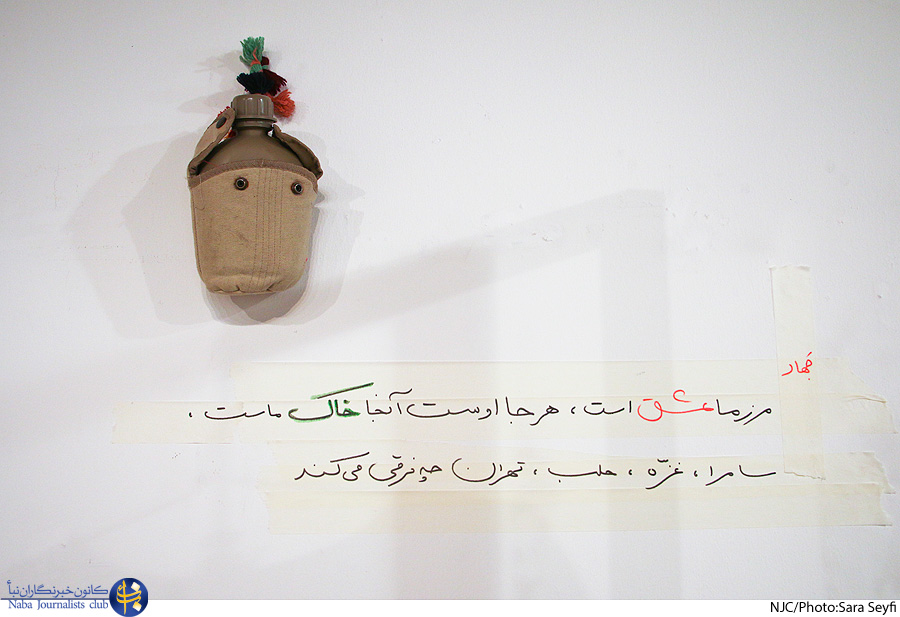 جهاد
مرز ما عشق است، هر جا اوست آنجا خاک ماست،
سامرا، غزّه، حلب، تهران چه فرقی می‌کند
کانون خبرنگاران نبأ
Naba Journalists club
NJC/Photo:Sara Seyfi